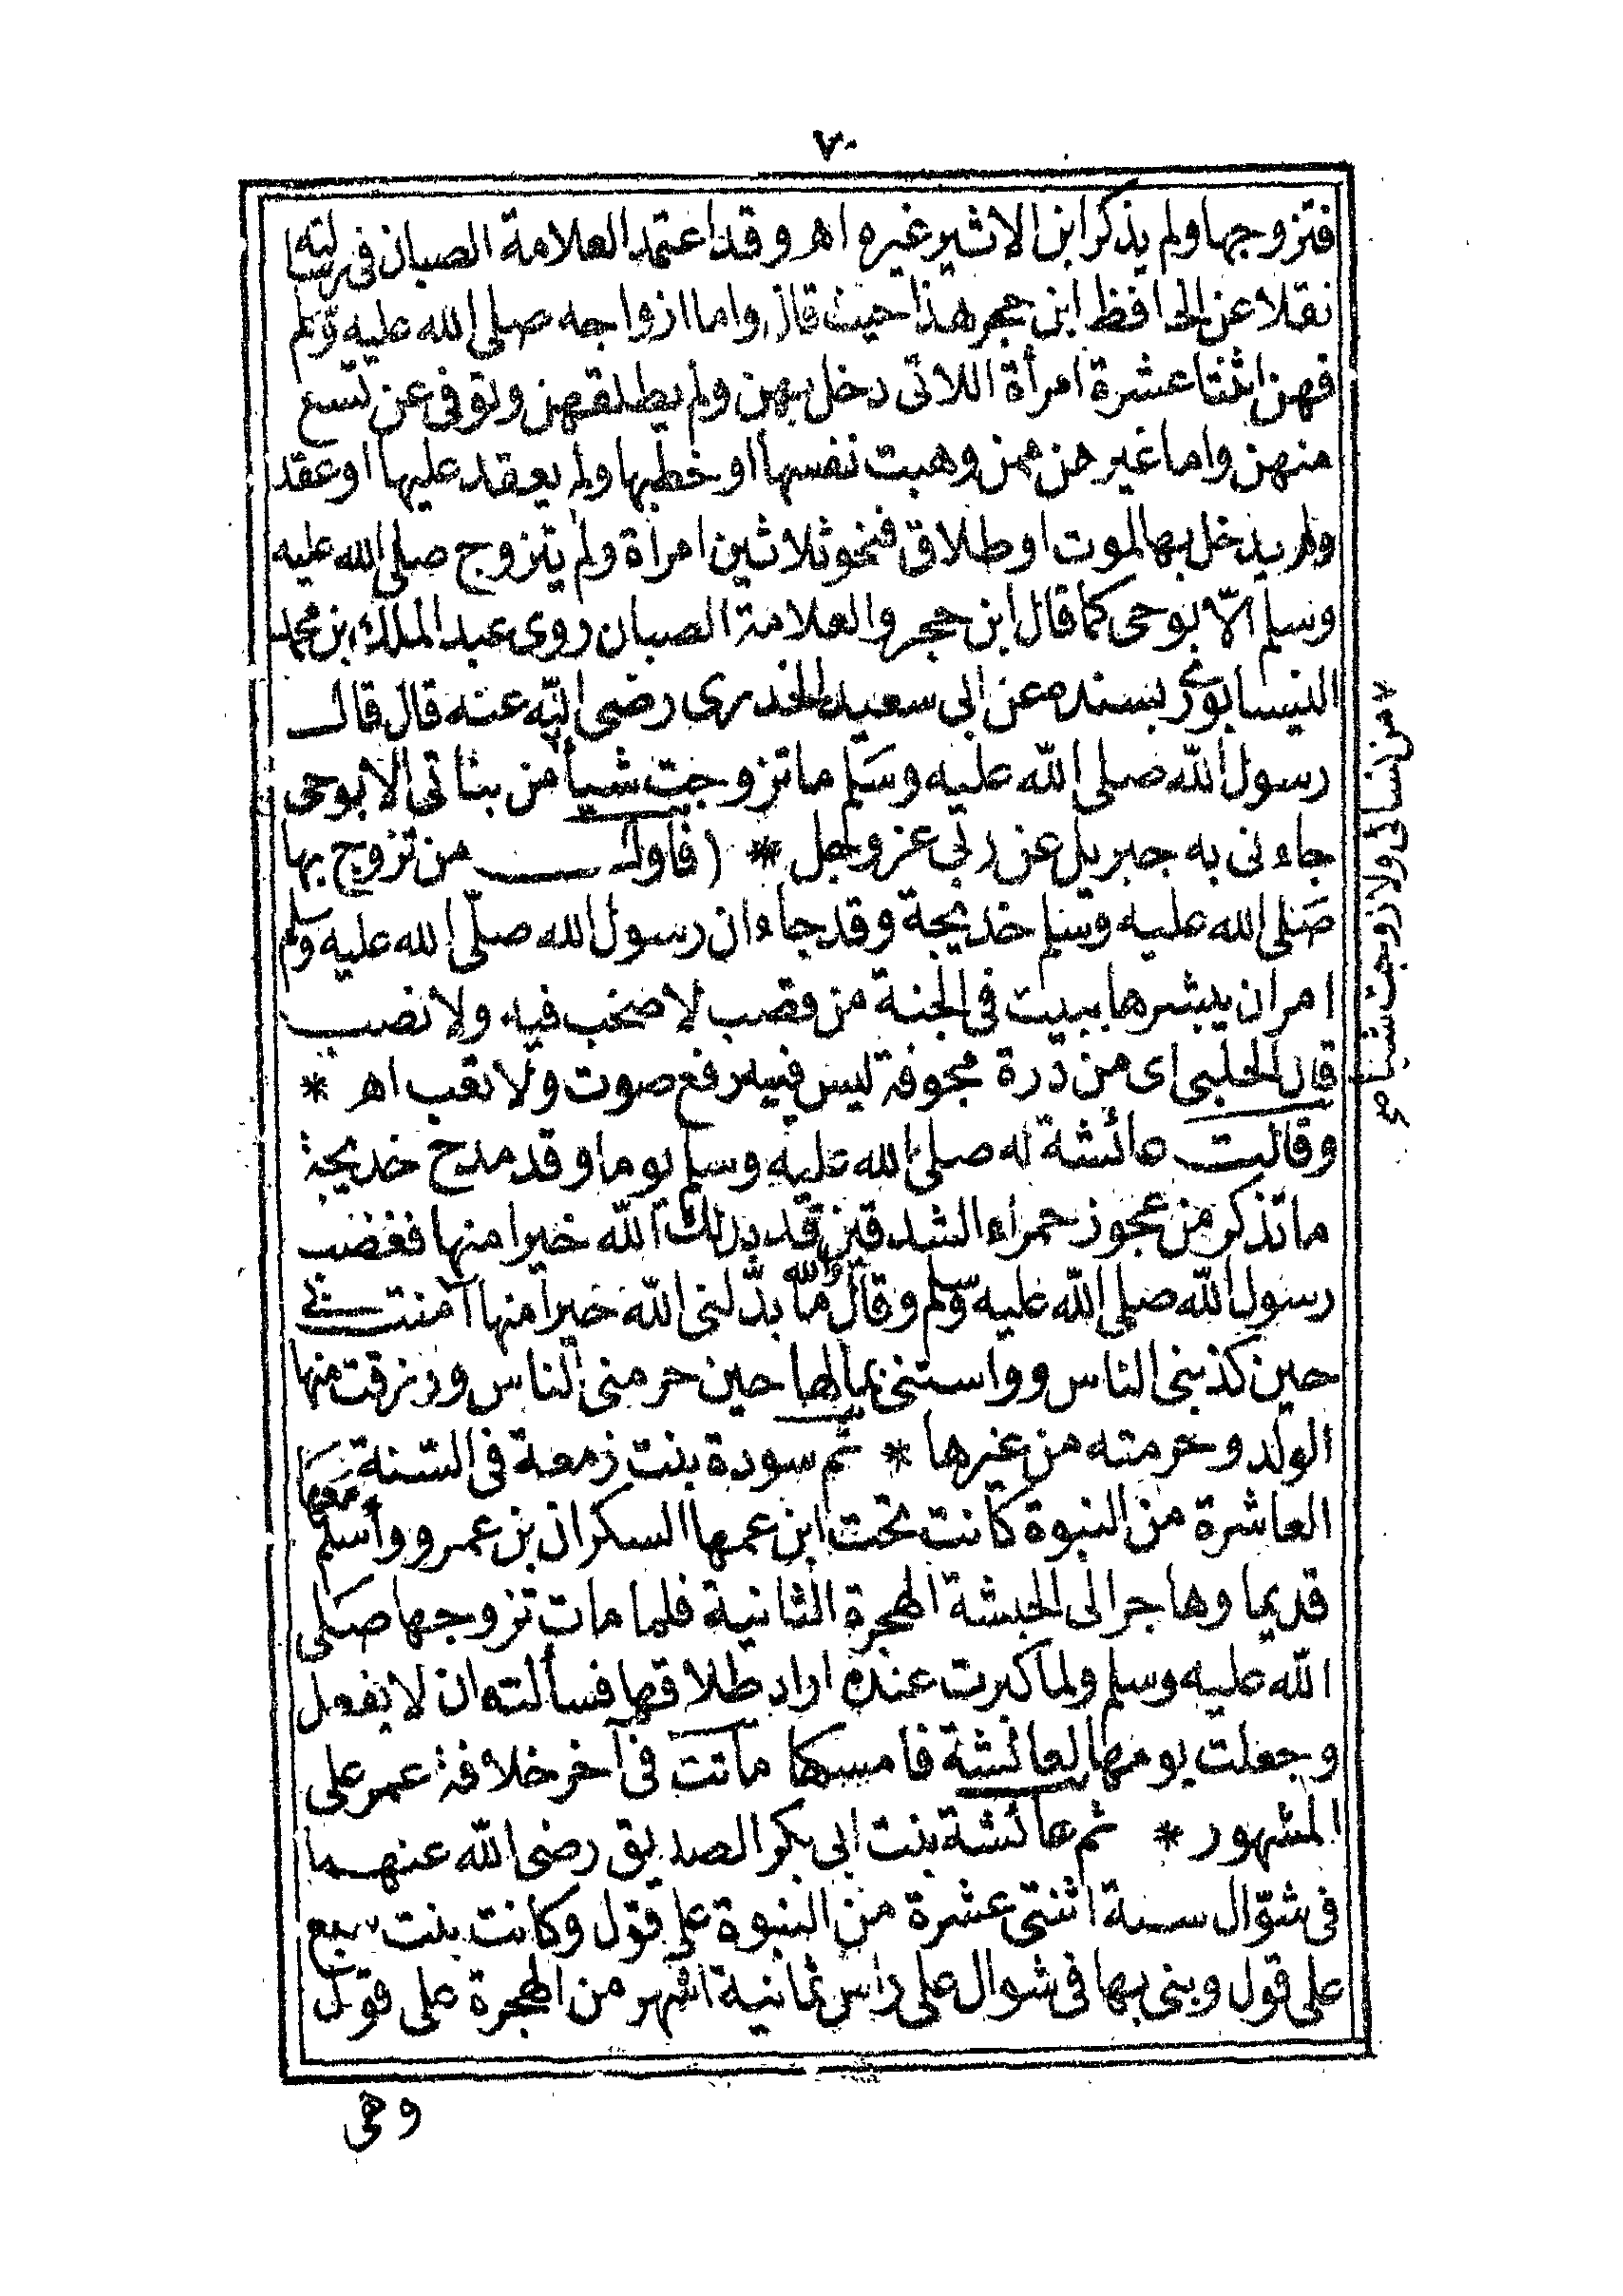 ٧٠
فتزوجها ولم يذكر ابن الاثير غيره اهـ وقد اعتمد العلامة الصبان فى رسالته
نقلا عن الحافظ ابن حجر هذا حيث قال واما ازواجه صلى الله عليه وسلم
فهن اثنتا عشرة امرأة اللاتى دخل بهن ولم يطلقهن وتوفى عن تسع
منهن واما غيرهن ممن وهبت نفسها او خطبها ولم يعقد عليها او عقد
ولم يدخل بها لموت او طلاق فنحو ثلاثين امرأة ولم يتزوج صلى الله عليه
وسلم الّا بوحى كما قال ابن حجر والعلامة الصبان روى عبد الملك بن محمد
النيسابورى بسنده عن ابى سعيد الخدرى رضى الله عنه قال قال
رسول الله صلى الله عليه وسلم ما تزوجت شيأ من بناتى الا بوحى
جاءنى به جبريل عن ربى عز وجل * (فاول من تزوج بها
صلى الله عليه وسلم خديجة وقد جاء ان رسول الله صلى الله عليه وسلم
امر ان يبشرها ببيت فى الجنة من قصب لا صخب فيه ولا نصب
قال الحلبى اى من درة مجوفة ليس فيه رفع صوت ولا تعب اهـ *
وقالت عائشة له صلى الله عليه وسلم يوما وقد مدح خديجة
ما تذكر من عجوز حمراء الشدقين قد بدلك الله خيرا منها فغضب
رسول الله صلى الله عليه وسلم وقال والله ما بدّلنى الله خيرا منها آمنت بى
حين كذبنى الناس وواستنى بمالها حين حرمنى الناس ورزقت منها
الولد وحرمته من غيرها * ثم سودة بنت زمعة فى السنة
العاشرة من النبوة كانت تحت ابن عمها السكران بن عمرو وأسلم معها
قديما وهاجر الى الحبشة الهجرة الثانية فلما مات تزوجها صلى
الله عليه وسلم ولما كبرت عنده اراد طلاقها فسألته ان لا يفعل
وجعلت يومها لعائشة فامسكها ماتت فى آخر خلافة عمر على
المشهور * ثم عائشة بنت ابى بكر الصديق رضى الله عنهما
فى شوّال سنة اثنتى عشرة من النبوة على قول وكانت بنت سبع
على قول وبنى بها فى شوال على راس ثمانية اشهر من الهجرة على قول
وهى
من نسائى ولا زوجت شيأ صح